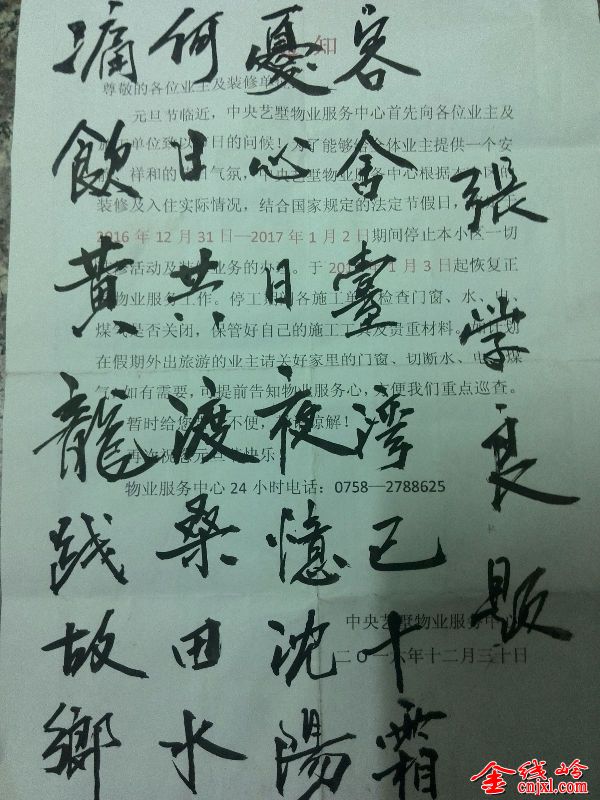 客舍臺灣已十霜
憂心日夜憶沈陽
何日共渡桑田水
痛飲黃龍践故鄉
張学良題
知
尊敬的各位业主及装修单
元旦节临近，中央艺墅物业服务中心首先向各位业主及
单位致以日的问候！为了能够给体业主提供一个安
祥和的气氛，中央艺墅物业服务中心根据
装修及入住实际情况，结合国家规定的法定节假日，
2016年12月31日—2017年1月2日期间停止本小区一切
活动及业务的办。于20 1月3日起恢复正
物业服务工作。停工期间各施工单检查门窗、水、电、
煤气是否关闭，保管好自己的施工工具及贵重材料。计划
在假期外出旅游的业主请关好家里的门窗、切断水、电煤
气如有需要，可提前告知物业服务心，方便我们重点巡查。
暂时给您不便，谅解！
再次祝元旦快乐
物业服务中心24小时电话：0758—2788625
中央艺墅物业服务中心
二〇一六年十二月三十日
金线岭
cnjxl.com